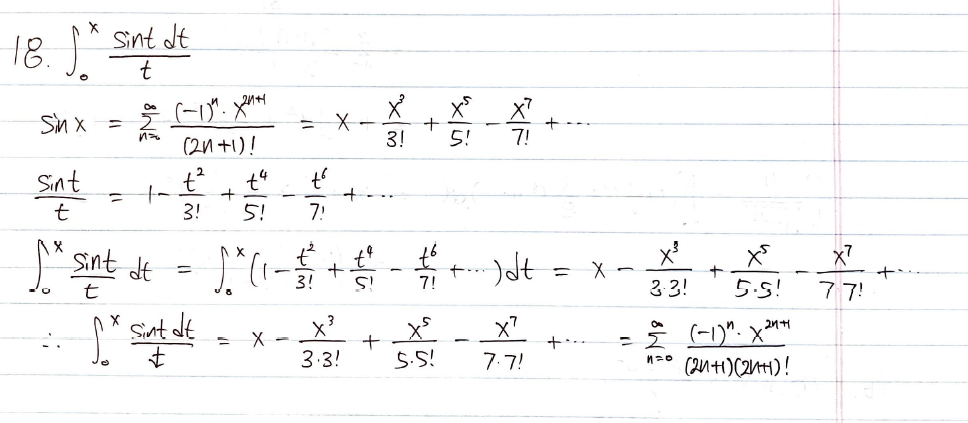 18. ∫₀ˣ (sint dt)/t
sin x = Σₙ₌₀^∞ ((-1)ⁿ · x²ⁿ⁺¹)/((2n+1)!) = x - x³/3! + x⁵/5! - x⁷/7! + ⋯
sint/t = 1 - t²/3! + t⁴/5! - t⁶/7! + ⋯
∫₀ˣ sint/t dt = ∫₀ˣ (1 - t²/3! + t⁴/5! - t⁶/7! + ⋯) dt = x - x³/(3·3!) + x⁵/(5·5!) - x⁷/(7·7!) + ⋯
∴ ∫₀ˣ (sint dt)/t = x - x³/(3·3!) + x⁵/(5·5!) - x⁷/(7·7!) + ⋯ = Σₙ₌₀^∞ ((-1)ⁿ · x²ⁿ⁺¹)/((2n+1)(2n+1)!)